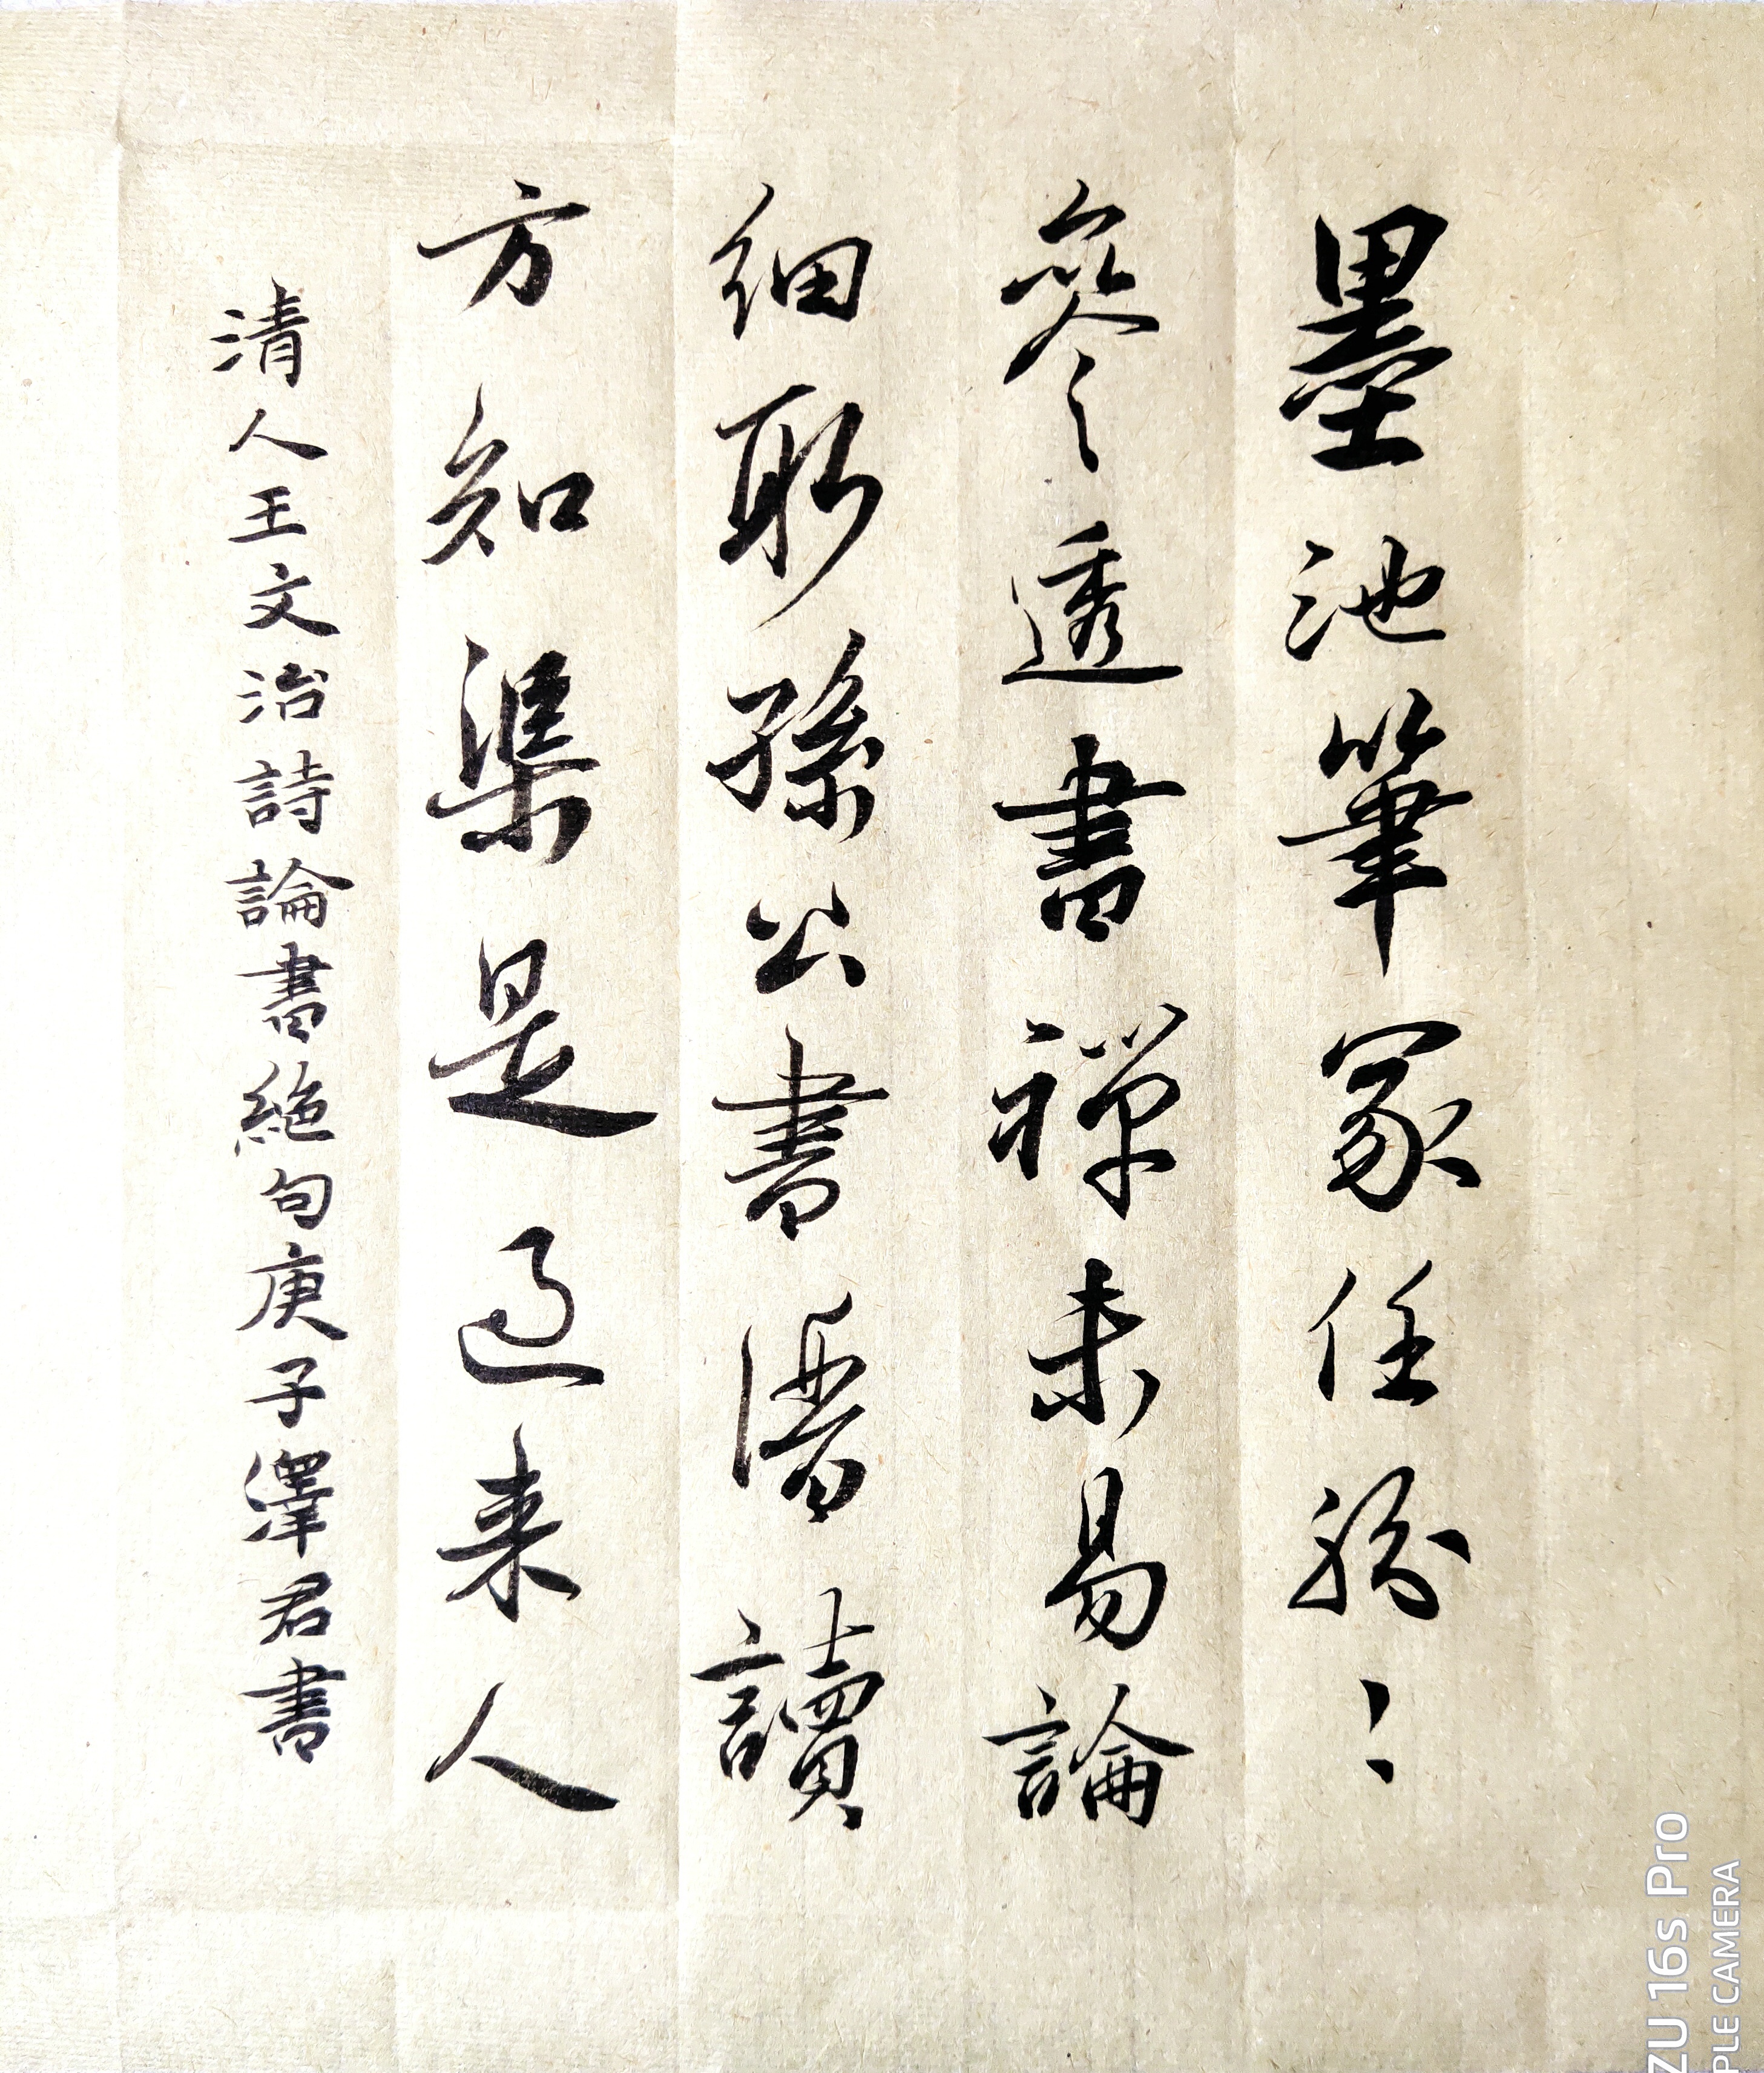 墨池筆冢任紛〻
參透書禪未易論
細取孫公書譜讀
方知渠是過来人
清人王文治詩論書絶句庚子澤君書
ZU 16s Pro
PLE CAMERA